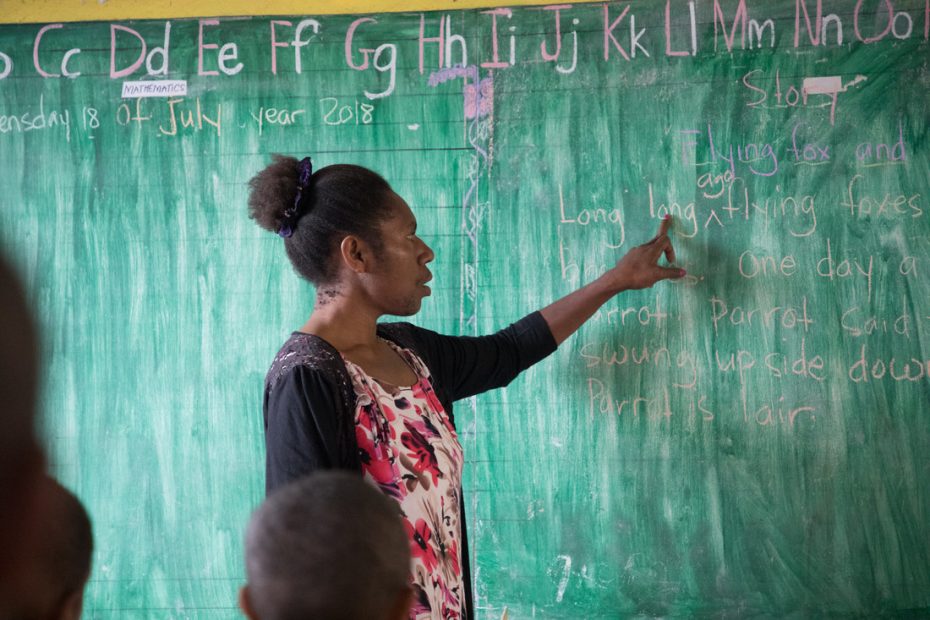 Cc Dd Ee Ff Gg Hh Ii Jj Kk Ll Mm Nn Oo
MATHEMATICS
ensday 18 of July year 2018
Story
Flying fox and
ago
Long long ^ flying foxes
One day a
arrot. Parrot said
swung up side down
Parrot is lair.